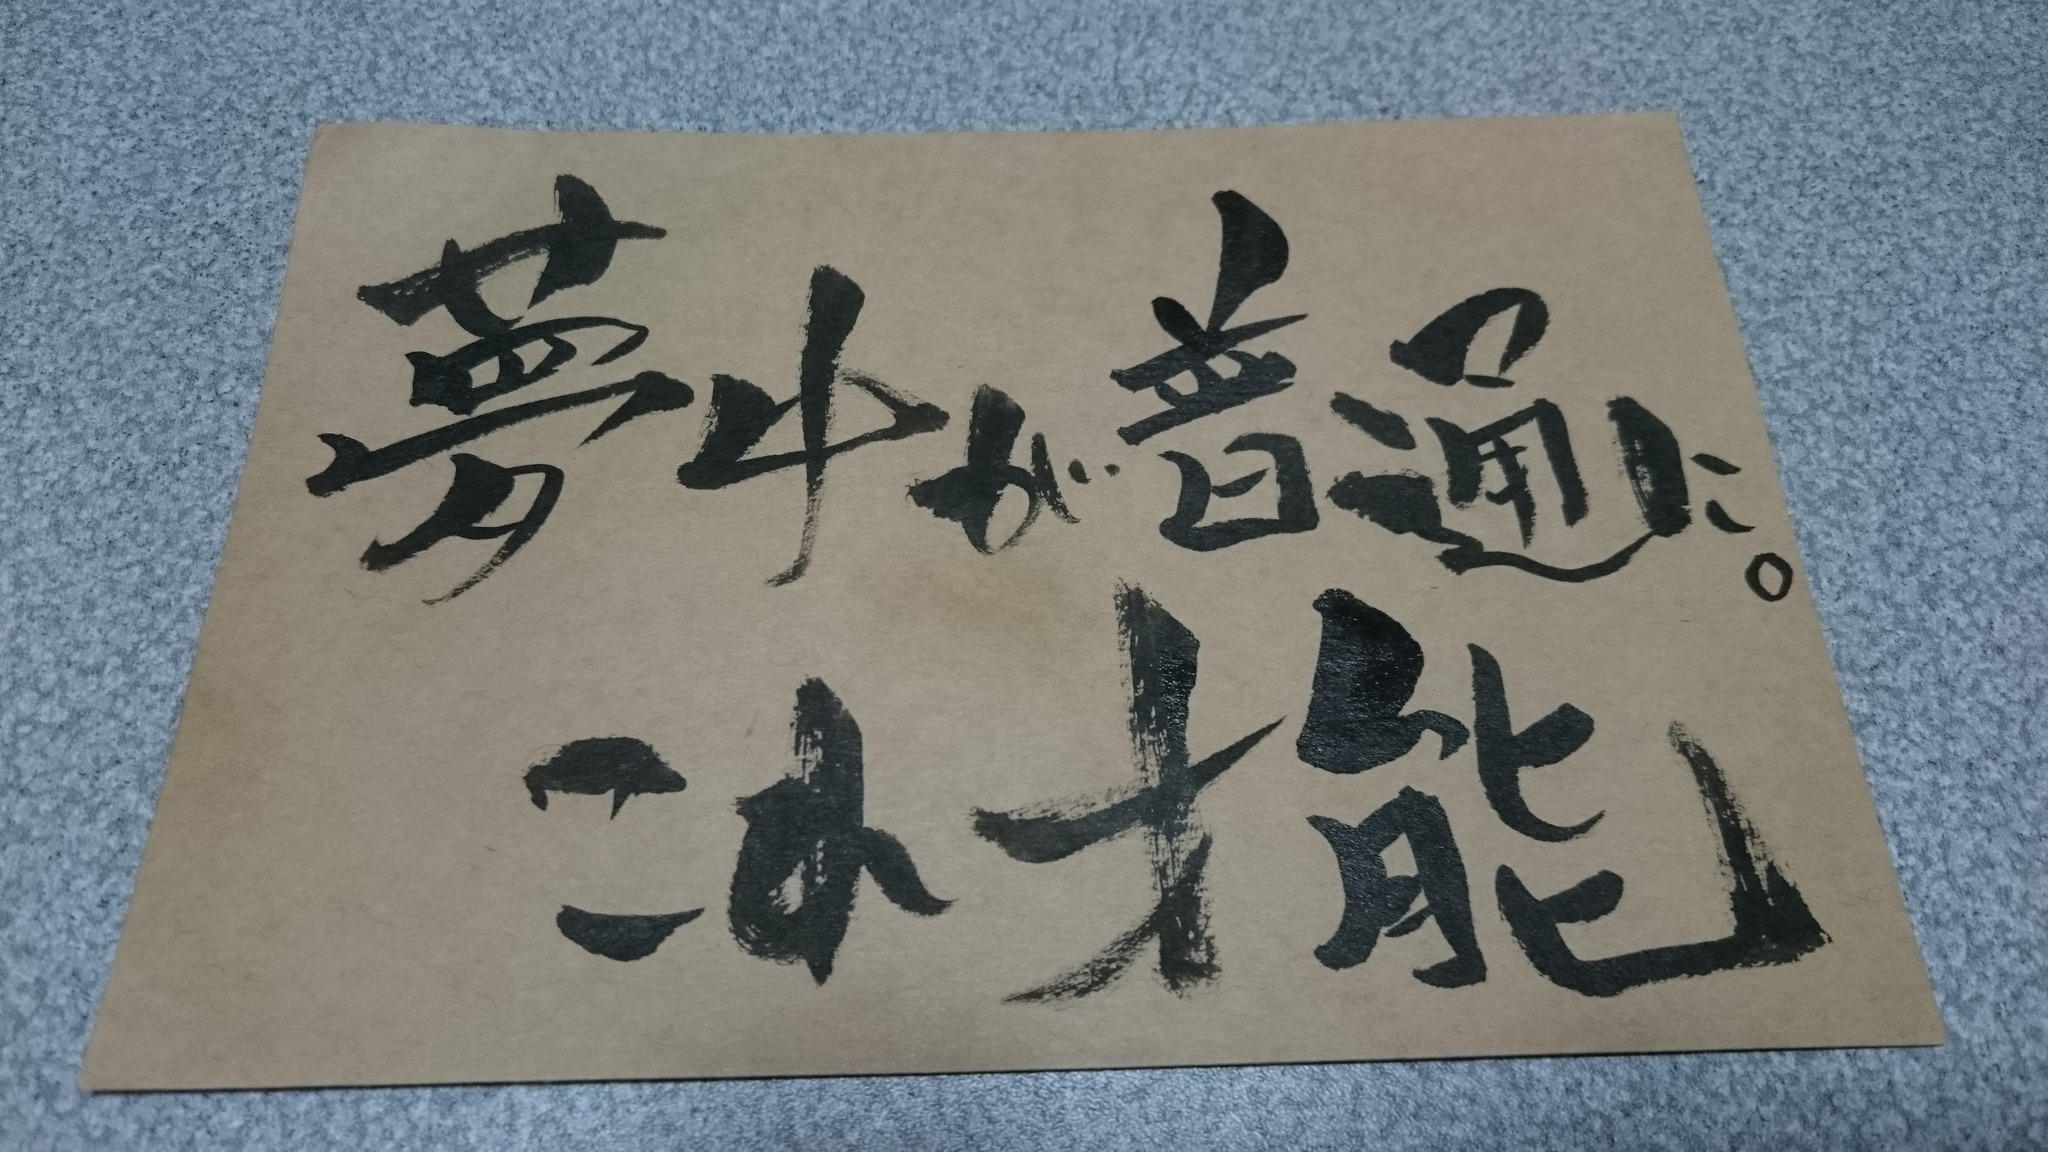 夢中が普通に。
これ才能